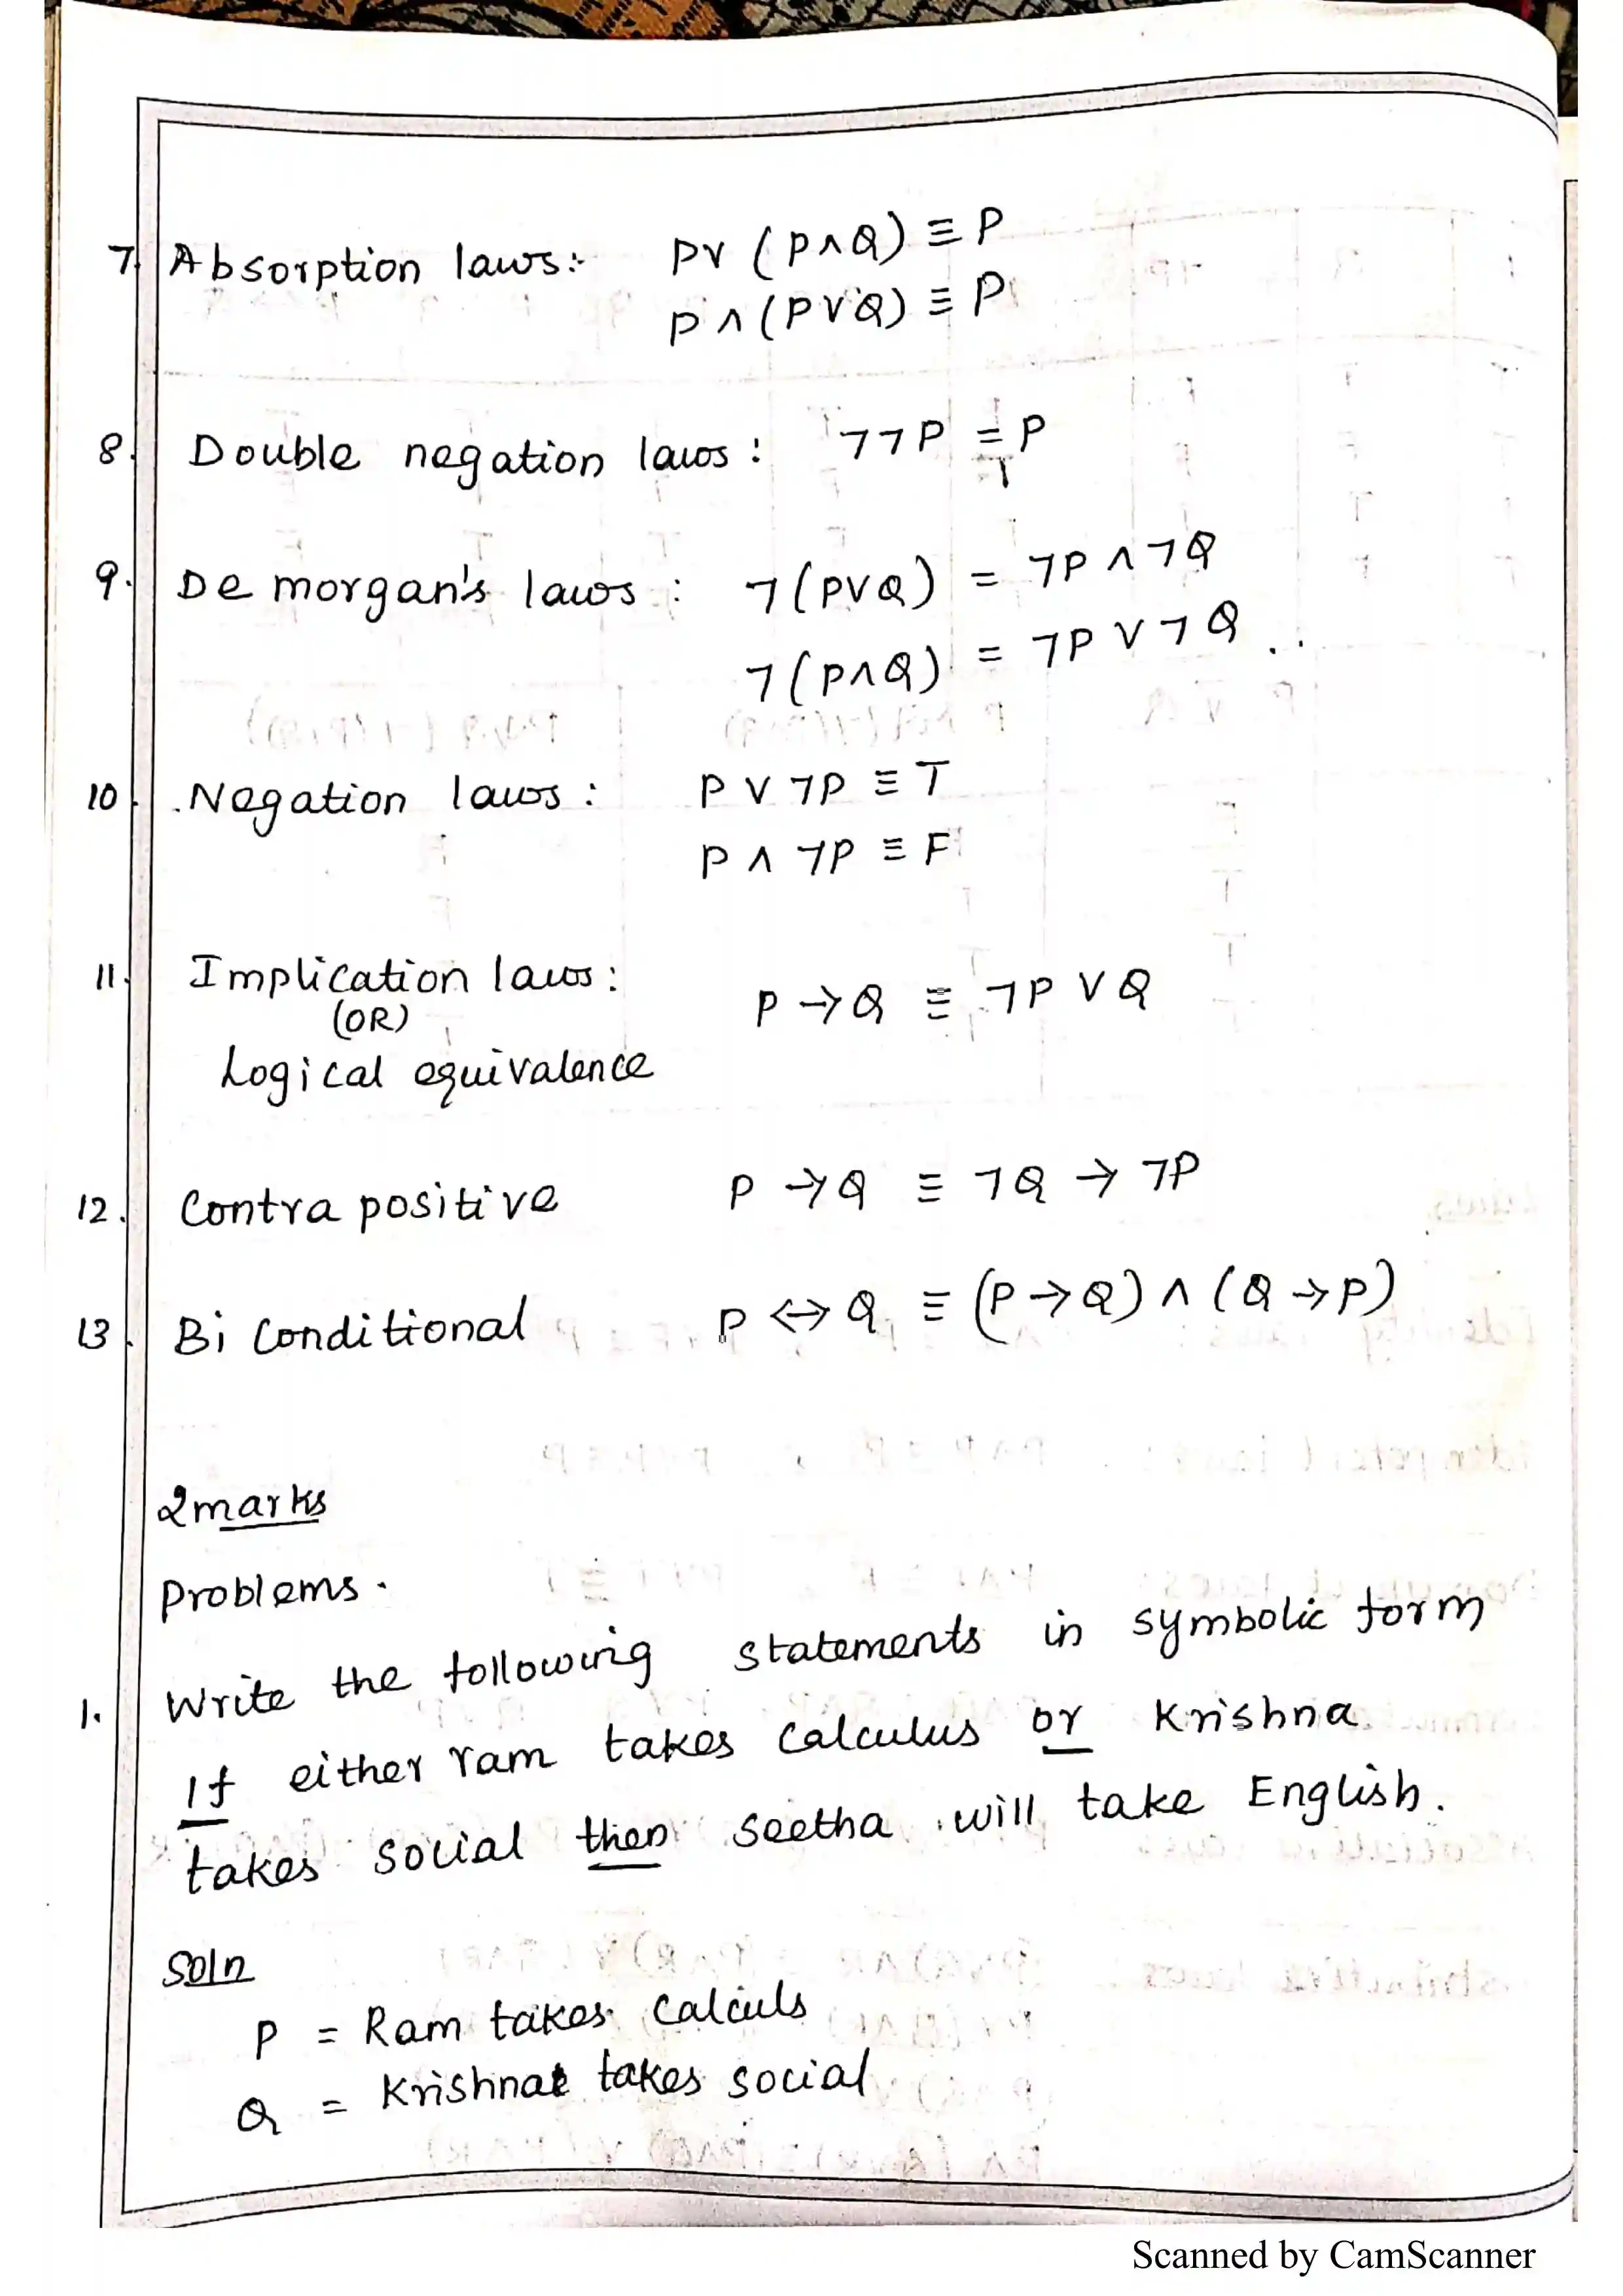 7. Absorption laws:- P∨ (P∧Q) ≡ P
P∧(P∨Q) ≡ P
8. Double negation laws : ¬¬P ≡ P
9. De morgan's laws : ¬(P∨Q) = ¬P ∧ ¬Q
¬(P∧Q) = ¬P ∨ ¬Q
10. Negation laws : P ∨ ¬P ≡ T
P ∧ ¬P ≡ F
11. Implication laws : P → Q ≡ ¬P ∨ Q
(OR)
Logical equivalence
12. Contra positive P → Q ≡ ¬Q → ¬P
13. Bi Conditional P ↔ Q ≡ (P → Q) ∧ (Q → P)
2marks
Problems.
1. Write the following statements in symbolic form
If either ram takes calculus or Krishna
takes social then seetha will take English.
Soln
P = Ram takes calculs
Q = Krishna takes social
Scanned by CamScanner